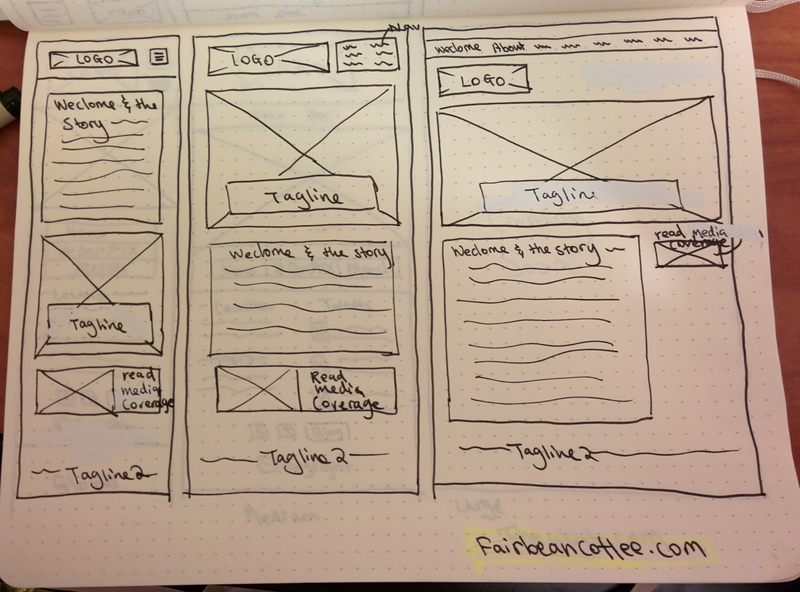 LOGO
Weclome & the
Story
Tagline
read
media
Coverage
Tagline2
Nav
LOGO
Tagline
Weclome & the story
Read
media
Coverage
Tagline2
Weclome About
LOGO
Tagline
Weclome & the story
read media
coverage
Tagline2
Medium
Large
fairbeancoffee.com